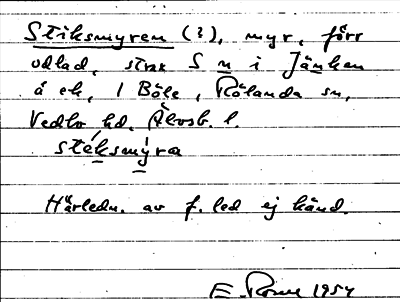 Stiksmyren (?), myr, förr
odlad, strax S n i Jänken
å ek, 1 Böle, Rölanda sn,
Vedbo hd. Älvsb. l.
stéksmýra
Härledn. av f. led ej känd.
E. 1954